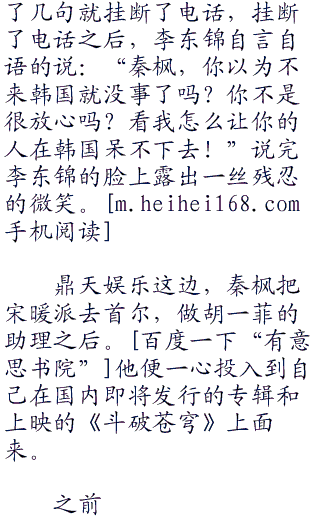 了几句就挂断了电话，挂断
了电话之后，李东锦自言自
语的说：“秦枫，你以为不
来韩国就没事了吗？你不是
很放心吗？看我怎么让你的
人在韩国呆不下去！”说完
李东锦的脸上露出一丝残忍
的微笑。[m.heihei168.com
手机阅读]
鼎天娱乐这边，秦枫把
宋暖派去首尔，做胡一菲的
助理之后。[百度一下“有意
思书院”]他便一心投入到自
己在国内即将发行的专辑和
上映的《斗破苍穹》上面
来。
之前